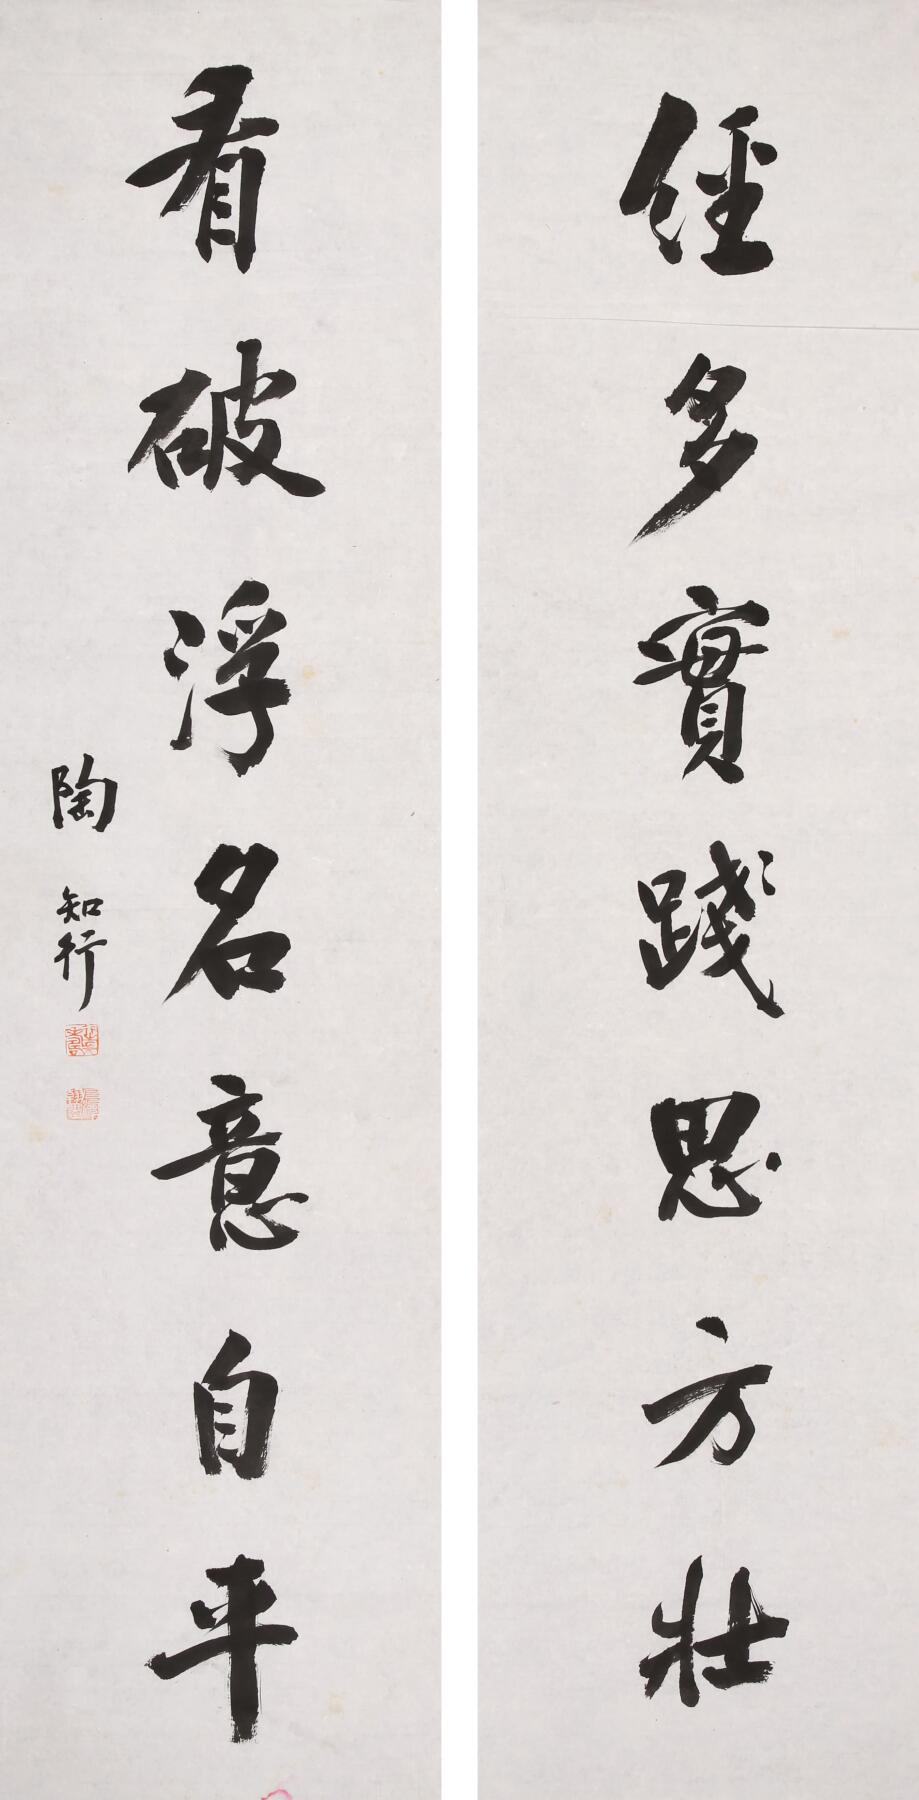 經多實踐思方壯
看破浮名意自平
陶知行